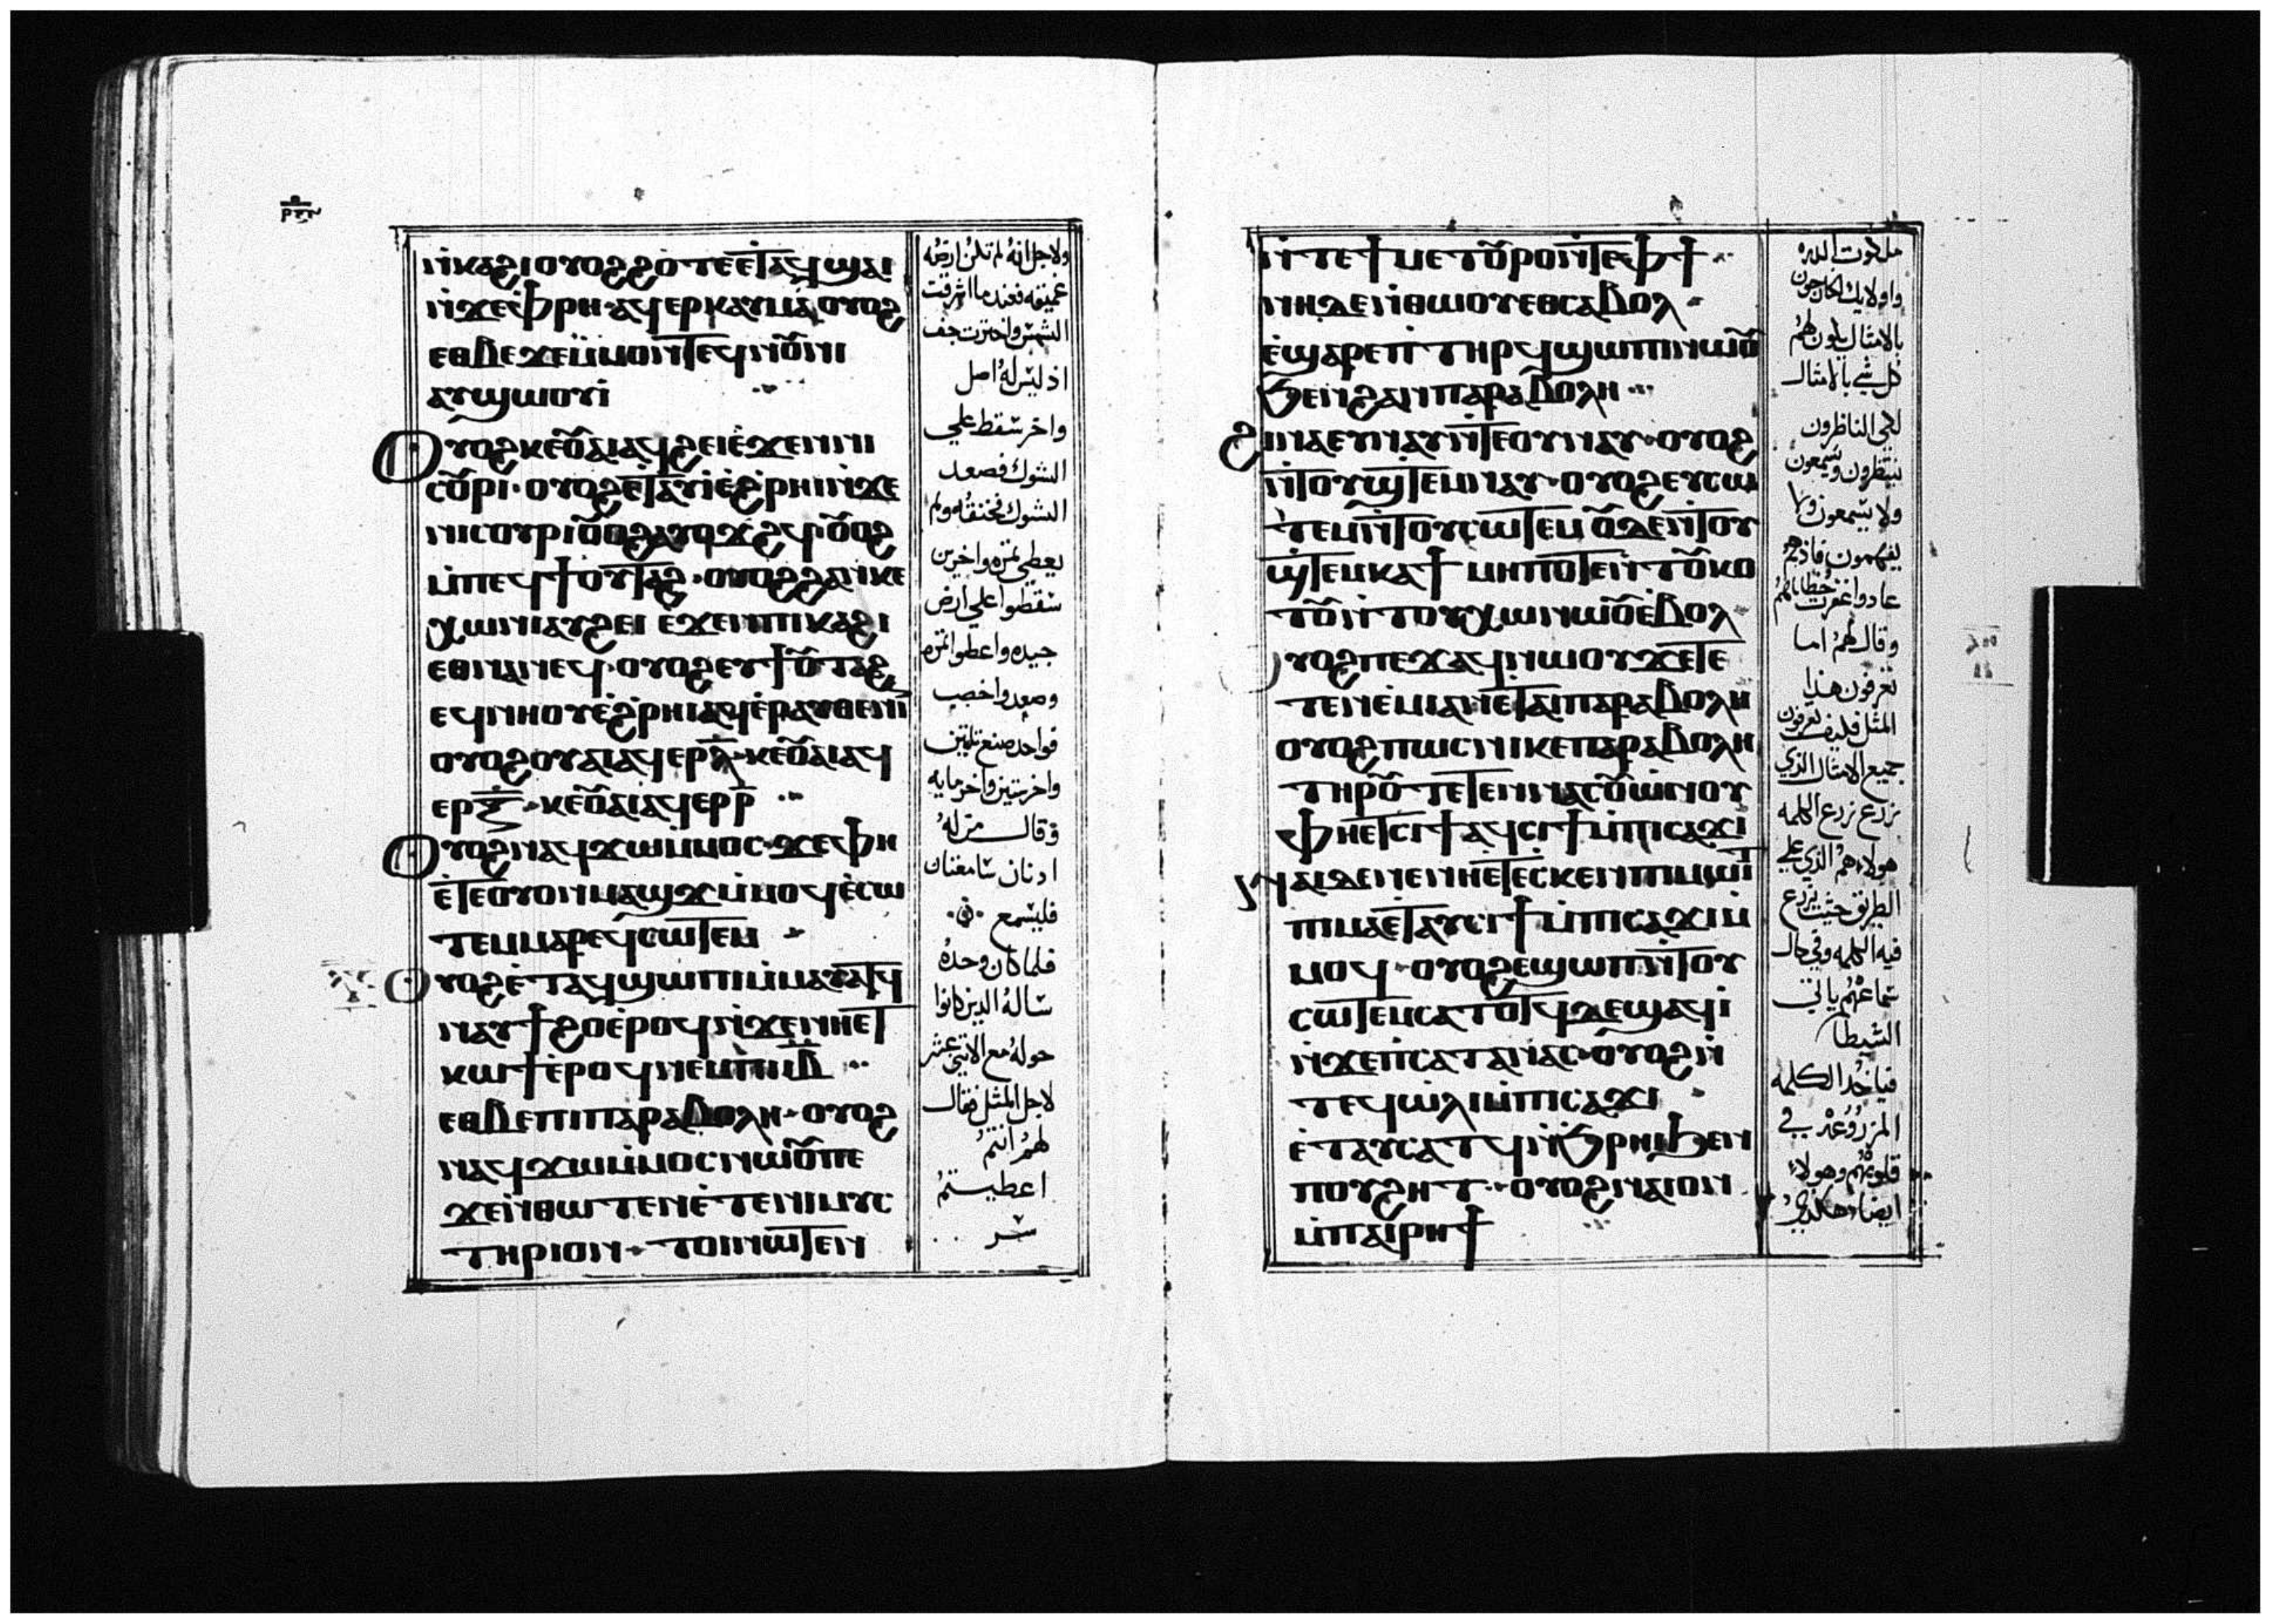 ⲛ̇ⲕⲁϩⲓ ⲟⲩⲟϩ ϩⲟⲧⲉ ⲉ̇ⲧⲁϥϣⲁⲓ
ⲛ̇ϫⲉⲫⲣⲏ ⲁϥⲉⲣⲕⲁⲩⲙⲁ ⲟⲩⲟϩ
ⲉⲑⲃⲉϫⲉ ⲙ̇ⲙⲟⲛⲧⲉϥⲛⲟⲩⲛⲓ
ⲁϥϣⲱⲟⲩⲓ̇
ⲟⲩⲟϩ ⲕⲉⲟⲩⲁⲓ ⲁϥϩⲉⲓ ⲉ̇ϫⲉⲛⲛⲓ
ⲥⲟⲩⲣⲓ ⲟⲩⲟϩ ⲉ̇ⲧⲁⲩⲓ̇ ⲉ̇ϩⲣⲏⲓ ⲛ̇ϫⲉ
ⲛⲓⲥⲟⲩⲣⲓ ⲟⲩⲟϩ ⲁⲩⲟϫϩϥ ⲟⲩⲟϩ
ⲙ̇ⲡⲉϥϯⲟⲩⲧⲁϩ ⲟⲩⲟϩ ϩⲁⲛⲕⲉ
ⲭⲱⲟⲩⲛⲓ ⲁⲩϩⲉⲓ ⲉ̇ϫⲉⲛⲡⲓⲕⲁϩⲓ
ⲉⲑⲛⲁⲛⲉϥ ⲟⲩⲟϩ ⲉⲩϯⲟⲩⲧⲁϩ
ⲉϥⲛⲏⲟⲩ ⲉ̇ϩⲣⲏⲓ
ⲟⲩⲟϩ ⲟⲩⲁⲓ ⲁϥⲉⲣⲗ̅ ⲕⲉⲟⲩⲁⲓ ⲁϥ
ⲉⲣⲝ̅ ⲕⲉⲟⲩⲁⲓ ⲁϥⲉⲣⲣ̅
ⲟⲩⲟϩ ⲛⲁϥϫⲱⲙ̇ⲙⲟⲥ ϫⲉⲫⲏ
ⲉ̇ⲧⲉⲟⲩⲟⲛⲙⲁϣϫ ⲙ̇ⲙⲟϥ ⲉ̇ⲥⲱ
ⲧⲉⲙ ⲙⲁⲣⲉϥⲥⲱⲧⲉⲙ
ⲟⲩⲟϩ ⲉ̇ⲧⲁϥϣⲱⲡⲓ ⲙ̇ⲙⲁⲩⲁⲧϥ
ⲛⲁⲩϯϩⲟ ⲉ̇ⲣⲟϥ ⲛ̇ϫⲉⲛⲏⲉⲧ
ⲕⲱϯ ⲉ̇ⲣⲟϥ ⲛⲉⲙⲡⲓⲓ̅ⲃ̅
ⲉⲑⲃⲉⲡⲓⲡⲁⲣⲁⲃⲟⲗⲏ ⲟⲩⲟϩ
ⲛⲁϥϫⲱⲙ̇ⲙⲟⲥ ⲛⲱⲟⲩ ⲡⲉ
ϫⲉⲛ̇ⲑⲱⲧⲉⲛ ⲉ̇ⲧⲉⲡⲓⲙⲩⲥ
ⲧⲏⲣⲓⲟⲛ ⲧⲟⲓ ⲛⲱⲧⲉⲛ
ولاجل انه لم تكن ارضه
عميقه فعندما اشرقت
الشمس واحترت جف
اذ ليس له اصل
واخر سقط علي
الشوك فصعد
الشوك فخنقه ولم
يعطي ثمره واخرين
سقطوا علي ارض
جيده واعطوا ثمره
وصعد واخصب
فواحد صنع ثلثين
واخر ستين واخر مايه
وقال من له
ادنان سامعتان
فليسمع
فلما كان وحده
ساله الذين كانوا
حوله مع الاثني عشر
لاجل المثل فقال
لهم انتم
اعطيتم
سر
ⲛ̇ⲧⲉϯⲙⲉⲧⲟⲩⲣⲟ ⲛ̇ⲧⲉⲫϯ
ⲛⲏ ⲇⲉ ⲛ̇ⲑⲱⲟⲩ ⲉⲧⲥⲁⲃⲟⲗ
ⲉ̇ϣⲁⲣⲉⲡⲧⲏⲣϥ ϣⲱⲡⲓ ⲛⲱⲟⲩ
ϧⲉⲛϩⲁⲛⲡⲁⲣⲁⲃⲟⲗⲏ
ϩⲓⲛⲁ ⲉⲩⲛⲁⲩ ⲛ̇ⲧⲉⲟⲩⲛⲁⲩ ⲟⲩⲟϩ
ⲛ̇ⲧⲟⲩϣⲧⲉⲙⲛⲁⲩ ⲟⲩⲟϩ ⲉⲩⲥⲱ
ⲧⲉⲙ ⲛ̇ⲧⲟⲩⲥⲱⲧⲉⲙ ⲟⲩⲟϩ ⲛ̇ⲧⲟⲩ
ϣⲧⲉⲙⲕⲁϯ ⲙⲏⲡⲟⲧⲉ ⲛ̇ⲧⲟⲩⲕⲟ
ⲧⲟⲩ ⲛ̇ⲧⲟⲩⲭⲱ ⲛⲱⲟⲩ ⲉ̇ⲃⲟⲗ
ⲟⲩⲟϩ ⲡⲉϫⲁϥ ⲛⲱⲟⲩ ϫⲉⲧⲉ
ⲧⲉⲛⲉ̇ⲙⲓ ⲁⲛ ⲉ̇ⲧⲁⲓⲡⲁⲣⲁⲃⲟⲗⲏ
ⲟⲩⲟϩ ⲡⲱⲥ ⲛⲓⲕⲉⲡⲁⲣⲁⲃⲟⲗⲏ
ⲧⲏⲣⲟⲩ ⲧⲉⲧⲉⲛⲛⲁⲥⲟⲩⲱⲛⲟⲩ
ⲫⲏⲉⲧⲥⲓϯ ⲁϥⲥⲓϯ ⲙ̇ⲡⲓⲥⲁϫⲓ
ⲛⲁⲓ ⲇⲉ ⲛⲉ ⲛⲏⲉⲧⲉⲥⲕⲉⲛⲡⲓⲙⲱⲓⲧ
ⲡⲓⲙⲁ ⲉ̇ⲧⲁⲩⲥⲓϯ ⲙ̇ⲡⲓⲥⲁϫⲓ ⲙ̇
ⲙⲟϥ ⲟⲩⲟϩ ⲉϣⲱⲡ ⲛ̇ⲧⲟⲩ
ⲥⲱⲧⲉⲙ ⲥⲁⲧⲟⲧϥ ⲇⲉ ϣⲁϥⲓ̇
ⲛ̇ϫⲉⲡⲥⲁⲧⲁⲛⲁⲥ ⲟⲩⲟϩ ⲛ̇
ⲧⲉϥⲱⲗⲓ ⲙ̇ⲡⲓⲥⲁϫⲓ
ⲉ̇ⲧⲁⲩⲥⲁⲧϥ ⲛ̇ϧⲣⲏⲓ ϧⲉⲛ
ⲡⲟⲩϩⲏⲧ ⲟⲩⲟϩ ⲛⲁⲓ ⲟⲛ
ⲙ̇ⲡⲁⲓⲣⲏϯ
ملكوت الله
واولايك الخارجون
بالامثال يكون لهم
كل شي بالامثال
لكي الناظرون
ينظرون ويسمعون
ولا يسمعون ولا
يفهمون
عادوا غفرت خطاياهم
وقال لهم اما
تعرفون هذا
المثل فكيف تعرفون
جميع الامثال الذي
يزرع يزرع الكلمه
هولاء هم الذي علي
الطريق حيث يزرع
فيه الكلمه وفي حال
سماعهم ياتي
الشيطا
فياخد الكلمه
المزروعه في
قلوبهم وهولاء
ايضا هكذي